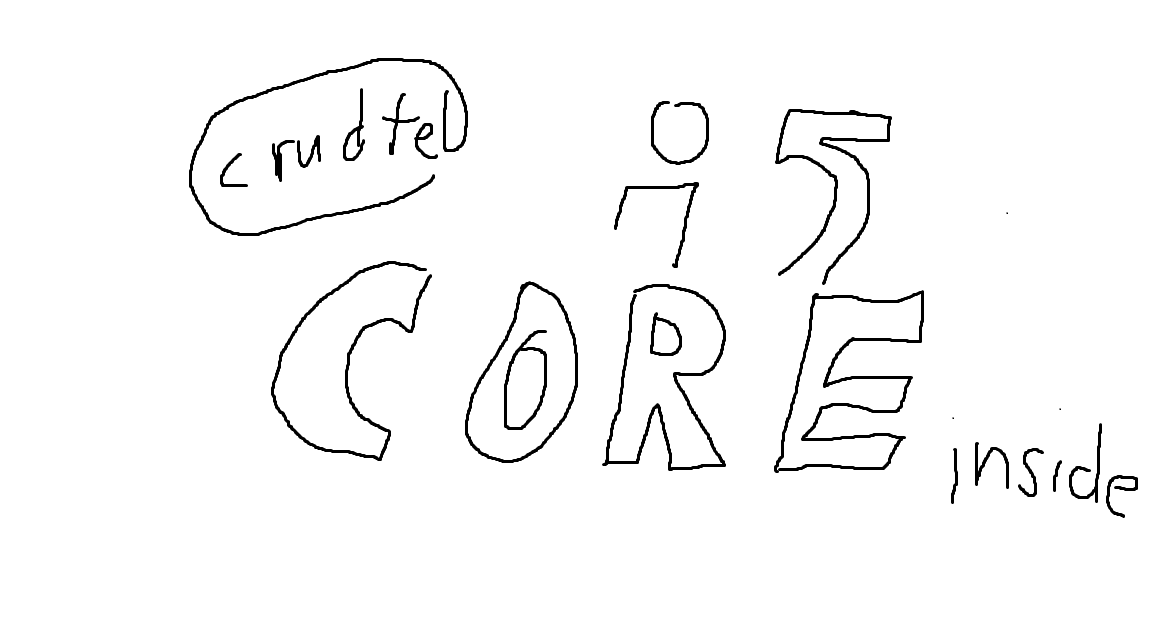 crudtel
i5
CORE
inside